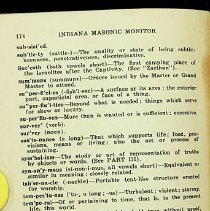 174 INDIANA MASONIC MONITOR
sub-sist-ed.
sub'tle-ty (suttle)—The quality or state of being subtle;
keenness, penetrativeness, discriminative.
Suc'coth (both vowels short)—The first camping place of
the Israelites after the Captivity. (See "Zarthan").
sum'mons (summuns)—Orders issued by the Master or Grand
Master to attend.
su'per-fi'ci-es (-fish'i-eez)—A surface or its area; the exterior
part, superficial area, or face of a thing.
su'per-flu'i-ties—Beyond what is needed; things which serve
for show or luxury.
su-per'flu-ous—More than is wanted or is sufficient; excessive.
sur-vey' (verb).
sur'vey (noun).
sus'te-nance (e long)—That which supports life; food, pro-
visions, means of living; also the act or process of
sustaining.
sym'bol-ism—The study or art of representation of truth
by objects or words. (See PART III).
syn-on'y-mous (si-non-i-mus, all vowels short)—Equivalent or
similar in meaning; closely related.
tab'er-na-cle (-nackle)—Portable tent-like structure erected
for worship.
tem-pes'tu-ous (tu, u long; -us)—Turbulent; violent; stormy.
tem'po-ral—Of or pertaining to time, that is, to the present
life, this world.